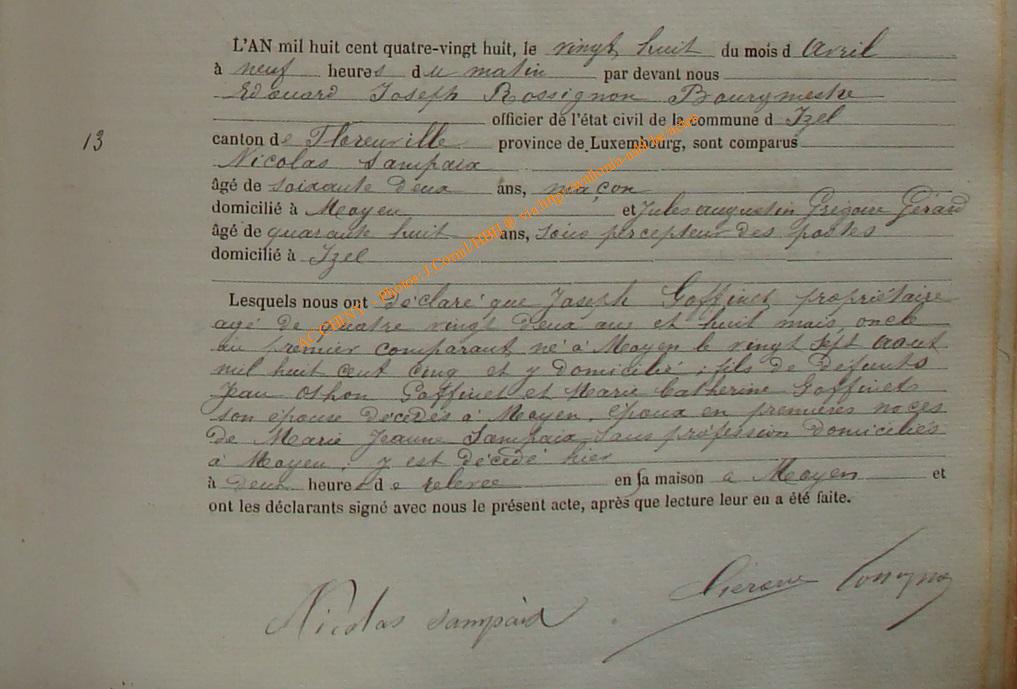 L'AN mil huit cent quatre-vingt huit, le vingt huit du mois d Avril
à neuf heures du matin par devant nous
Edouard Joseph Rossignon Bourgmestre
officier de l'état civil de la commune d Izel
13
canton de Florenville province de Luxembourg, sont comparus
Nicolas Sampaix
âgé de soixante deux ans, maçon
domicilié à Moyen et Jules Augustin Grégoire Gérard
âgé de quarante huit ans, sous percepteur des postes
domicilié à Izel
Lesquels nous ont déclaré que Joseph Goffinet propriétaire
agé de quatre vingt deux ans et huit mois, oncle
au premier comparant, né à Moyen le vingt sept Aout
mil huit cent cinq et y domicilié ; fils de défunts
Jean Othon Goffinet et Marie Catherine Goffinet
son épouse décédés à Moyen. époux en premières noces
de Marie Jeanne Sampaix sans profession domiciliés
à Moyen ; y est décédé hier
à deux heures de relevée en sa maison a Moyen et
ont les déclarants signé avec nous le présent acte, après que lecture leur en a été faite.
Nicolas Sampaix